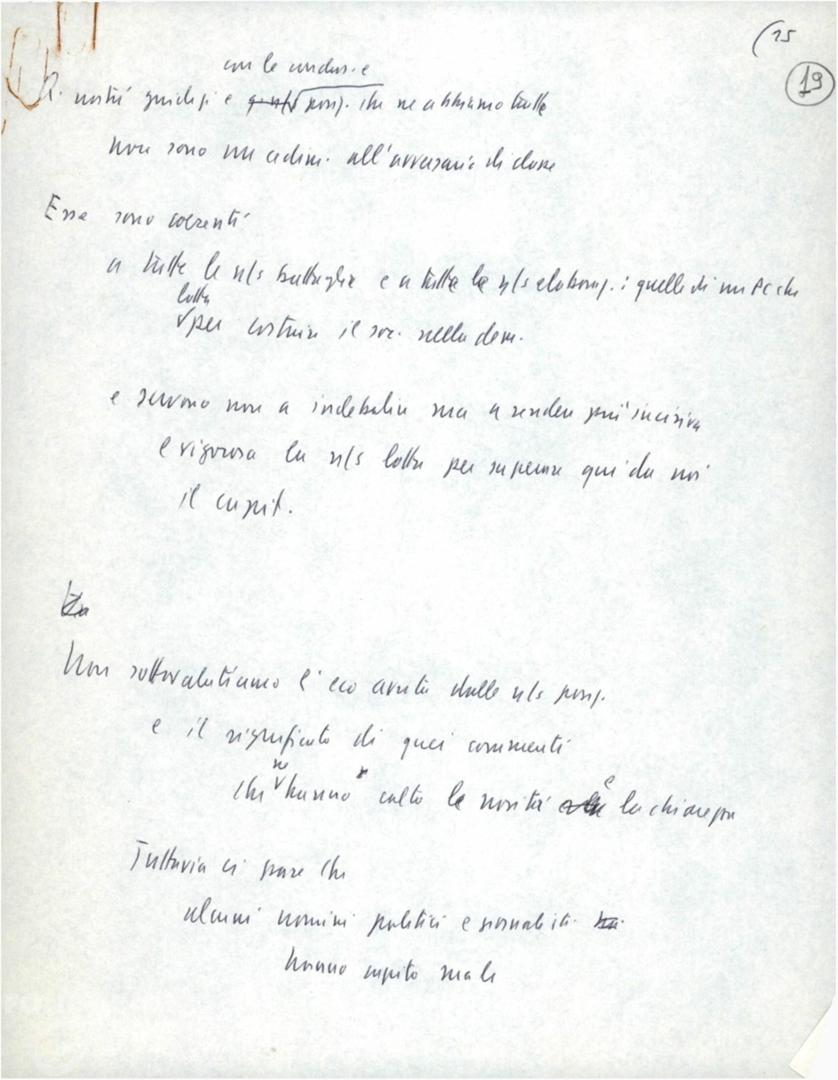 15
19
con le conclus. e
I nostri giudizi e posiz. che ne abbiamo tratte
non sono un cedim. all'avversario di classe
Esse sono coerenti
a tutte le n/s battaglie e a tutte le n/s elaboraz.: quelle di un PC che
lotta
per costruire il soc. nella dem.
e servono non a indebolire ma a rendere più incisiva
e vigorosa la n/s lotta per superare qui da noi
il capit.
Non sottovalutiamo l'eco avuta dalle n/s posiz.
e il significato di quei commenti
che ne hanno colto la novità e la chiarezza
Tuttavia ci pare che
alcuni uomini politici e giornalisti
hanno capito male